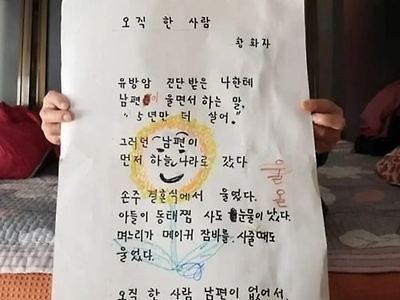 오직 한 사람
황화자
유방암 진단받은 나한테
남편이 울면서 하는 말,
"5년만 더 살어."
그러던 남편이
먼저 하늘나라로 갔다
손주 결혼식에서 울었다.
아들이 동태찜 사도 눈물이 났다.
며느리가 메이커 잠바를 사줄때도
울었다.
오직 한 사람 남편이 없어서